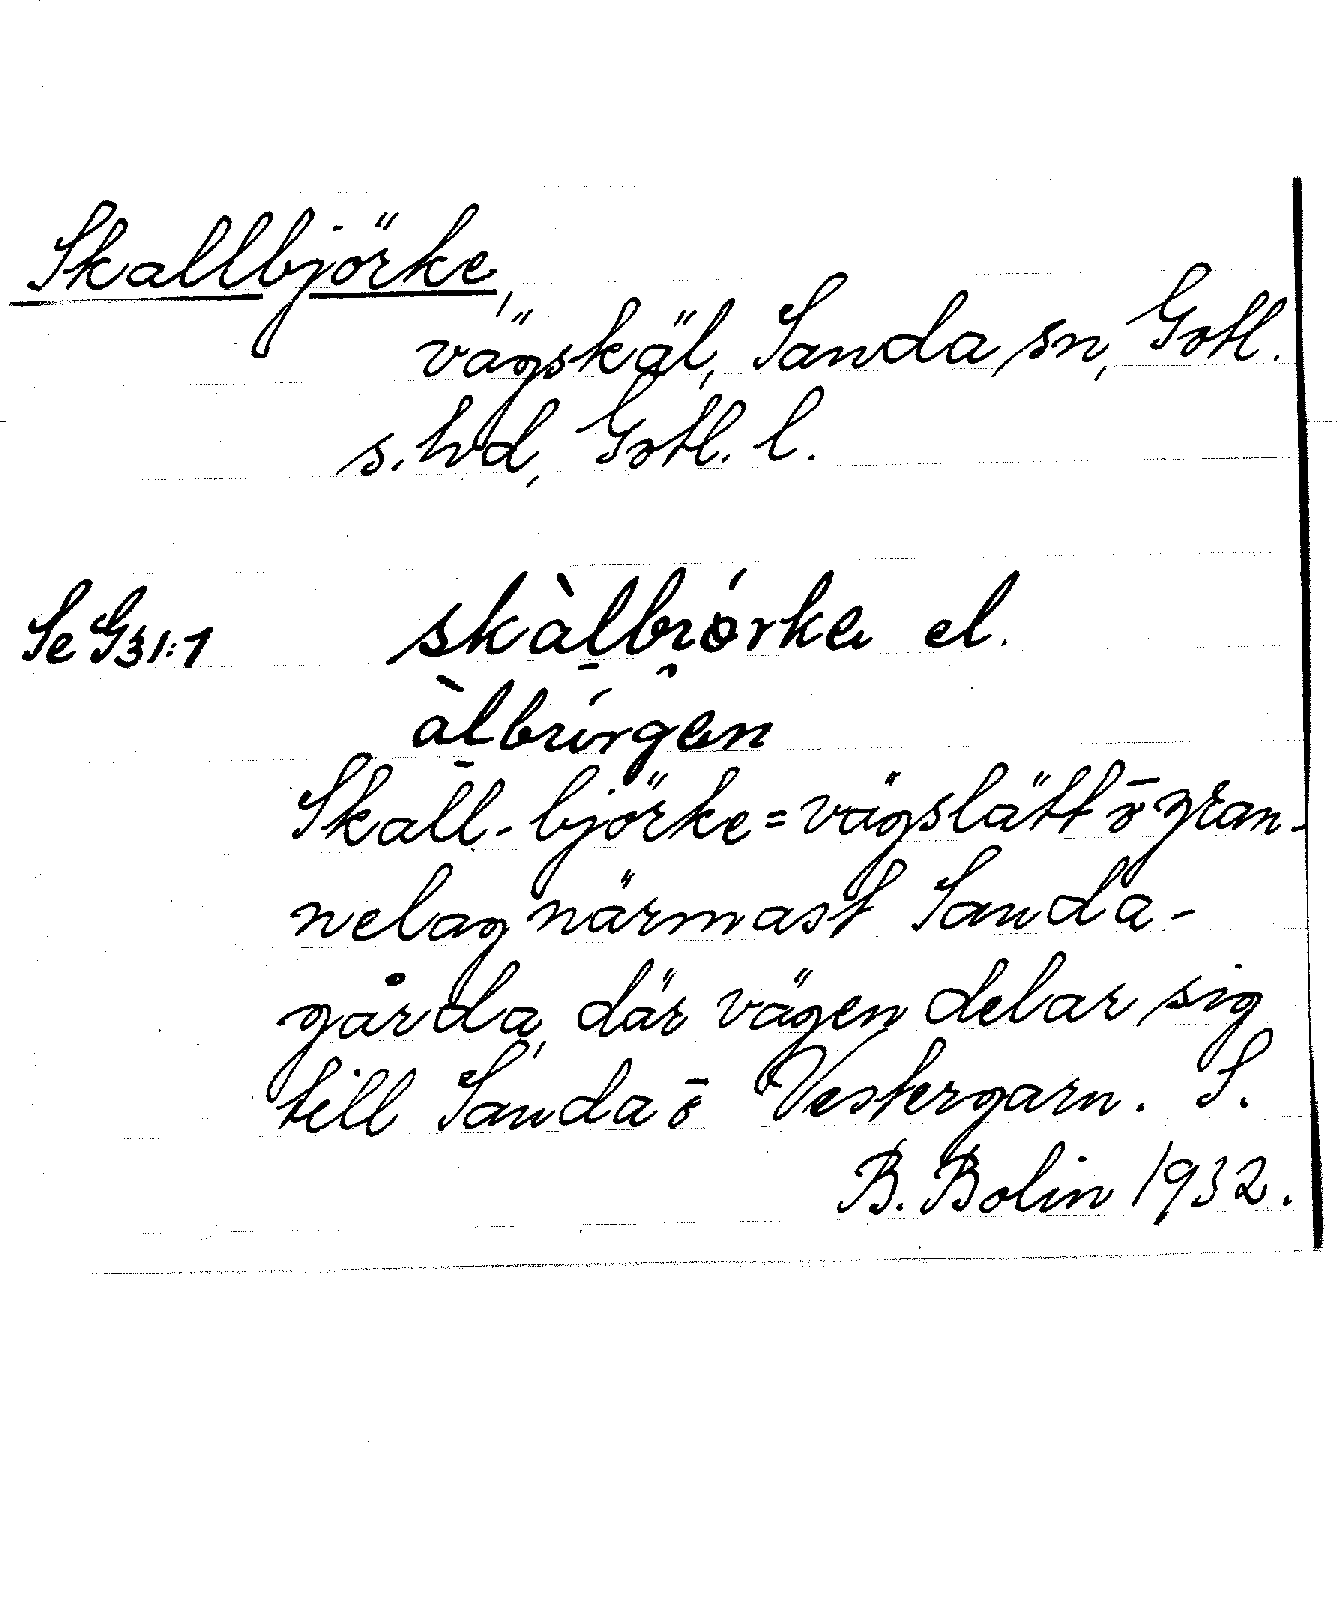 Skallbjörke,
vägskäl, Sanda sn, Gotl.
s. hd, Gotl. l.
Se G31:1 skàlbıórka el.
àlbıírgan
Skall-björke = vägslätt ō gran-
nelag närmast Sanda-
gårda, där vägen delar sig
till Sanda ō Vestergarn. S.
B. Bolin 1932.